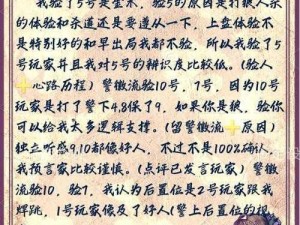 我验了5号是金水,验5的原因是打狼人杀
的体验和杀道还是要遵从一下,上盘体验不
是特别好的和早出局我都不验,所以我验了5
号玩家并且我对5号的辩识度比较低。(验人
心路历程)警徽流验10号,1号,因为10号
玩家是打了警下4.8保了9。如果你是狼,验你
可以给我太多逻辑支撑。(留警徽流 原因)
独立听感9,10都像好人,不过不是100%确认,
我预言家比较谨慎。(点评已发言玩家)警徽
流验10,验1,我认为后置位是2号玩家跟我
焊跳,1号玩家像及了好人(警上后置位的提